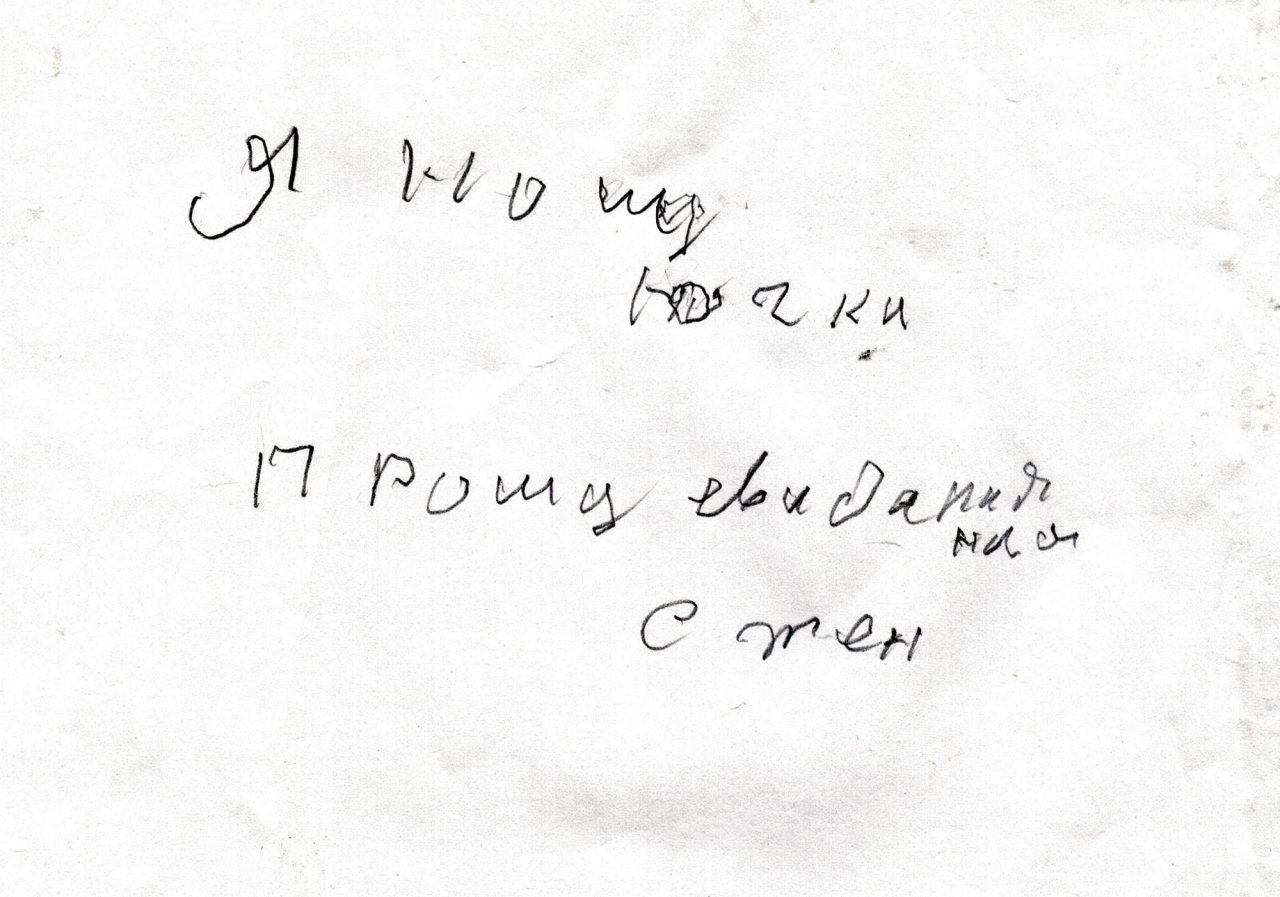 Я ношу
очки
Прошу свидания
с жен